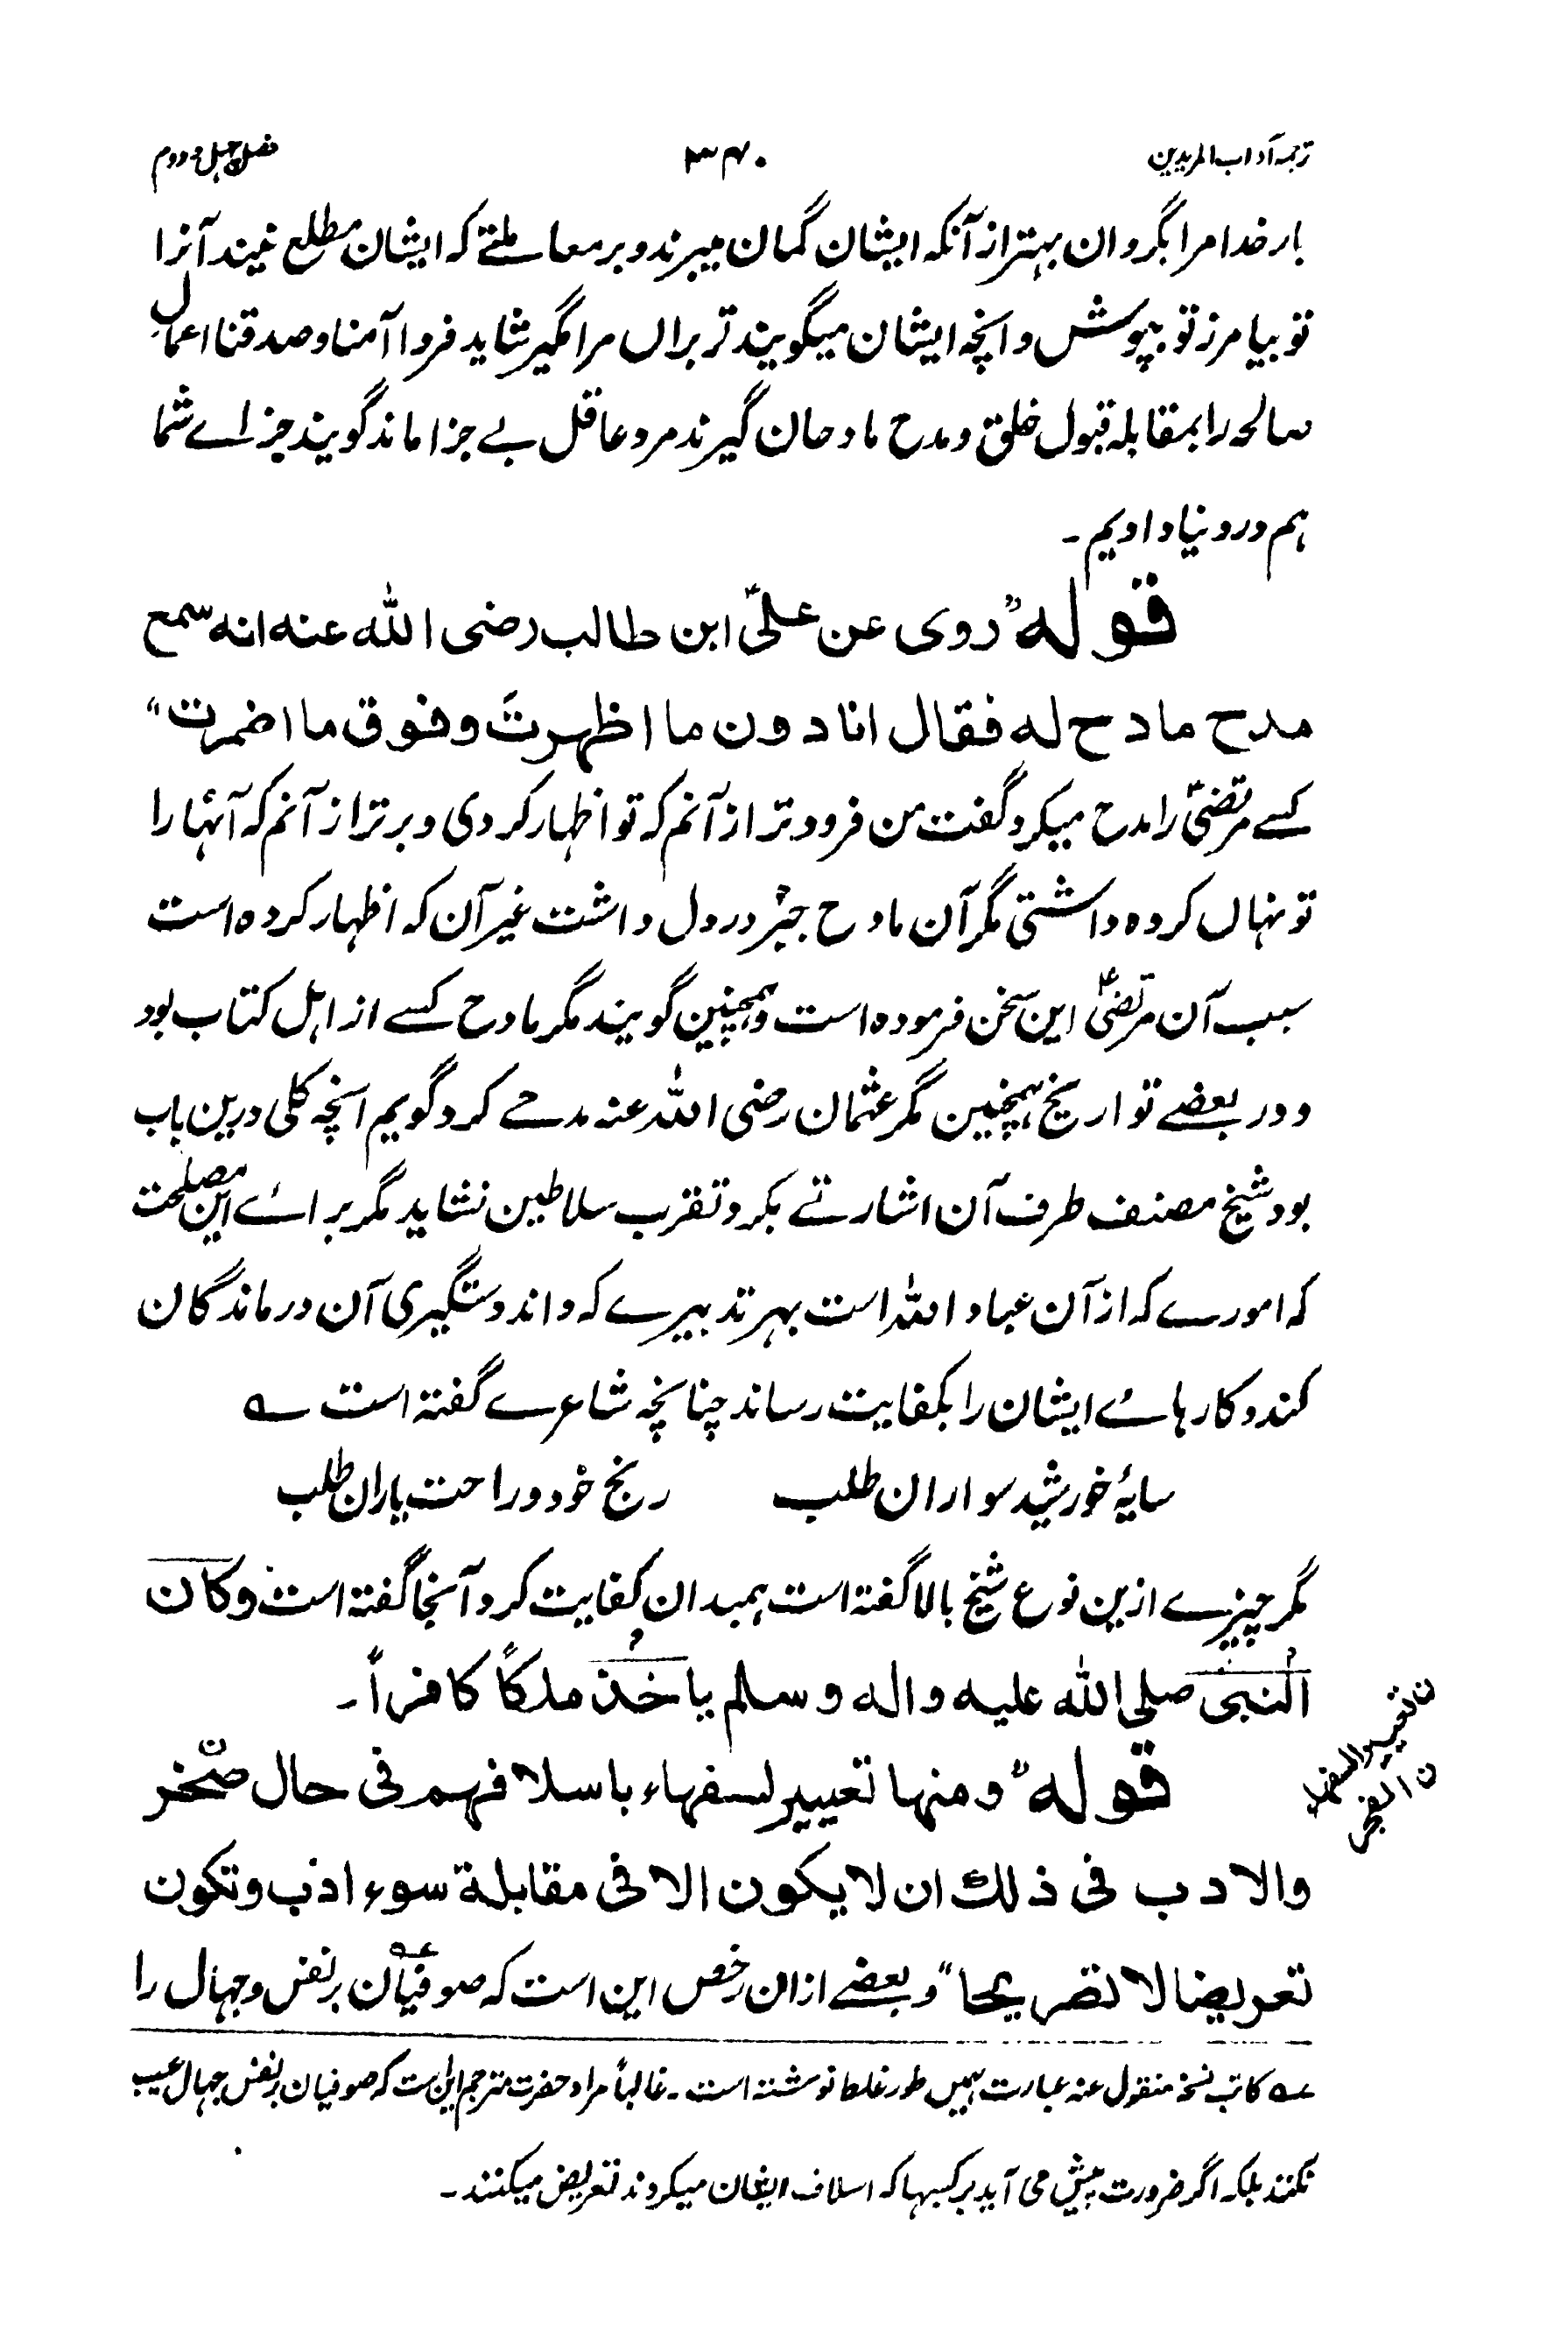 ترجمہ آداب المریدین ۳۴۰ فصل چہل و دوم
بار خدا مرا بگردان بہتر از آنکہ ایشان گمان میبرند و بر معاملتے کہ ایشان مطلع نیند آنرا
تو بیامرز تو بپوش و آنچہ ایشان میگویند تو بران مرا مگیر شاید فردا آمنا و صدقنا اعمال
صالحہ را بمقابلہ قبول خلق و مدح مادحان گیرند مرد عاقل بے جزا ماند گویند جزاے شما
ہم در دنیا دادیم۔
قولہ "روی عن علیؓ ابن طالب رضی اللہ عنہ انہ سمع
مدح مادح لہ فقال انا دون ما اظہرتَ وفوق ما اضمرت"
کسے مرتضیؓ را مدح میکرد گفت من فرودتر از آنم کہ تو اظہار کردی و برتر از آنم کہ آنہا را
تو نہاں کردہ داشتی مگر آن مادح چیزے در دل داشت غیر آن کہ اظہار کردہ است
سبب آن مرتضیؓ این سخن فرمودہ است و ہمچنین گویند مگر مادح کسے از اہل کتاب بود
و در بعضے تواریخ ہمچنین مگر عثمان رضی اللہ عنہ مدحے کرد گویم آنچہ کلی درین باب
بود شیخ مصنف طرف آن اشارتے بکرد تقرب سلاطین نشاید مگر براے این مصلحت
کہ امورے کہ از آن عباد اللہ است بہر تدبیرے کہ داند دستگیری آن درماندگان
کند و کارہاے ایشان را بکفایت رساند چنانچہ شاعرے گفتہ است ؎
سایۂ خورشید سواران طلب رنج خود و راحت یاران طلب
مگر چیزے ازین نوع شیخ بالا گفتہ است ہمبدان کفایت کرد آنجا گفتہ است وکان
النبی صلی اللہ علیہ والہ وسلم یاخذ ملکاً کافراً۔
قولہ "ومنہا تعییر لسفہاء باسلافہم فی حال ضخر
والادب فی ذلک ان لا یکون الا فی مقابلة سوء ادب وتکون
تعریضا لا تصریحا" و بعضے ازان رخص این است کہ صوفیان بر نفس و جہال را
ن تعییر السفہاء
ن الفخر
؎ کاتب نسخہ منقول عنہ عبارت ہمیں طور غلط نوشتہ است۔ غالباً مراد حضرت مترجم این ست کہ صوفیان بر نفس جہال عیب
نکنند بلکہ اگر ضرورت پیش می آید بر کسبہا کہ اسلاف ایشان میکردند تعریض میکنند۔